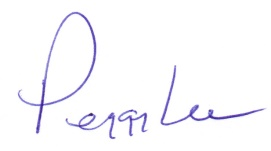 Peggy Lee